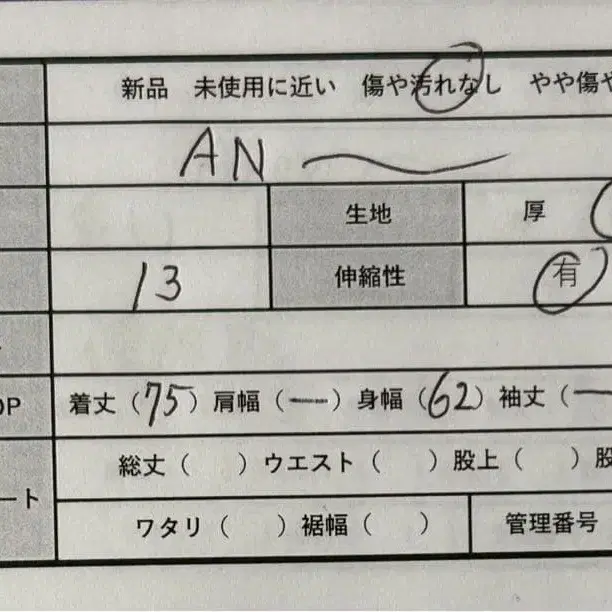 新品 未使用に近い 傷や汚れなし やや傷や
AN
生地 厚
13 伸縮性 有
OP 着丈(75)肩幅(ー)身幅(62)袖丈(ー
総丈( )ウエスト( )股上( )股
ート
ワタリ( )裾幅( ) 管理番号